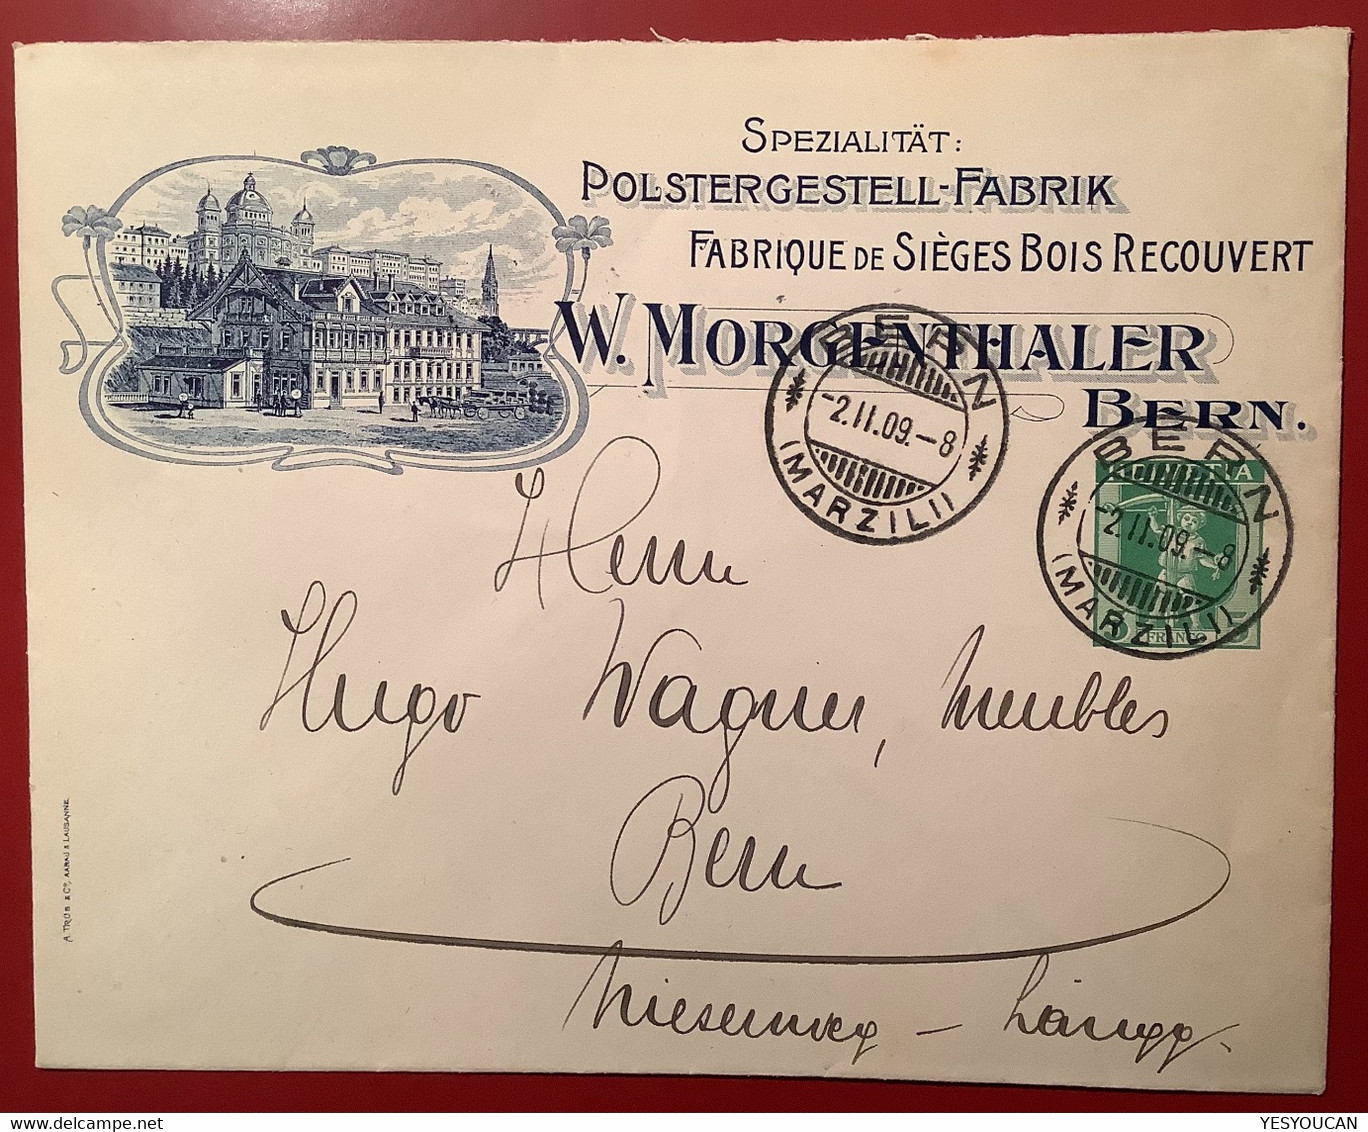 SPEZIALITÄT:
POLSTERGESTELL-FABRIK
FABRIQUE DE SIÈGES BOIS RECOUVERT
W. MORGENTHALER
BERN.
BERN
-2.II.09.-8
(MARZILI)
HELVETIA
BERN
-2.II.09.-8
(MARZILI)
5 FRANCO 5
Herrn
Hugo Wagner, Meubles
Bern
Niesenweg - Längg.
A. TRÜB & Cº, AARAU & LAUSANNE.
YESYOUCAN